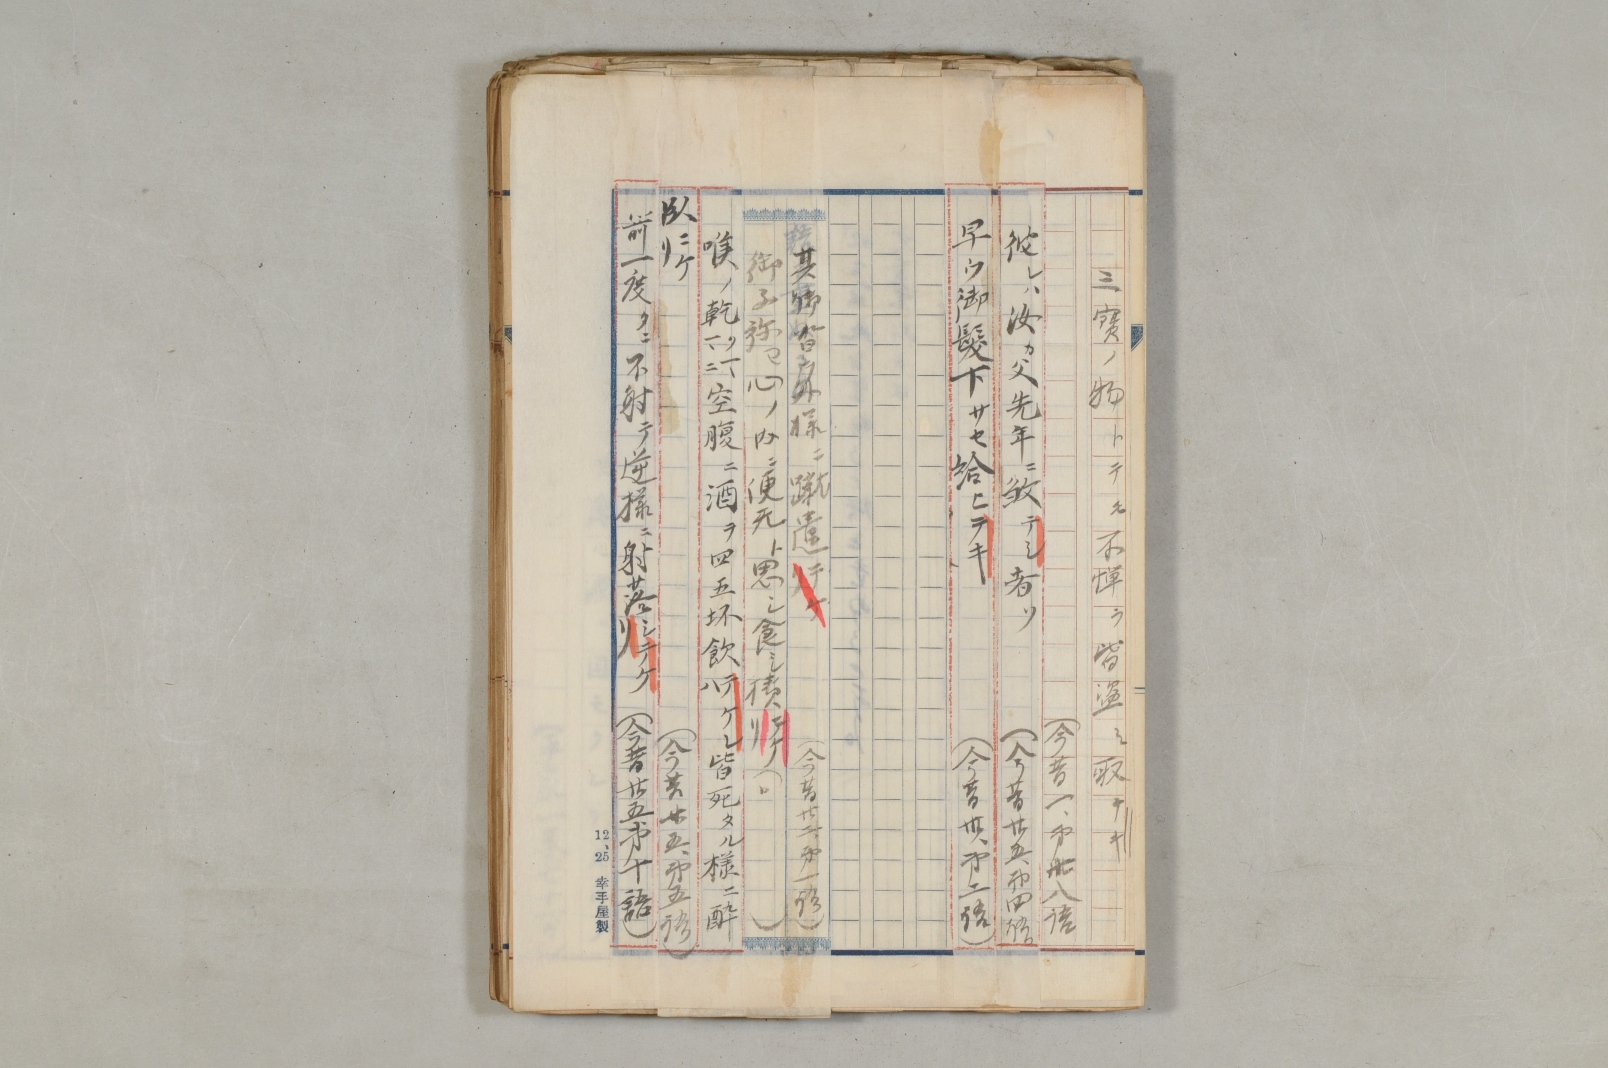 三寳ノ物トテモ不憚ラ皆盗ミ取テキ
(今昔一、第卅八語
彼レハ汝カ父先年ニ敘テシ者ソ
(今昔廿五、第四語
早ウ御髪下サセ給ヒテキ
(今昔卅、第二語)
其御皆外様ニ蹴遣テケリ
(今昔廿二、第一語)
御子弥ヨ心ノ内ニ便无ト思シ食シ積ニケリ
喉ノ乾クマヽニ空腹ニ酒ヲ四五坏飲テケレハ皆死タル様ニ酔
臥ニケリ
(今昔廿五、第五語)
箭一度タニ不射テ逆様ニ射落シテケリ
(今昔廿五第十語)
12、25 幸手屋製